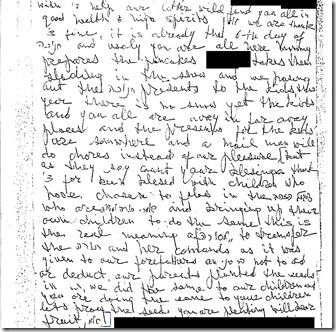 with 's help our letter will find you all in
good health & high spirits we are thank
's fine, it is already the 6-th day of
and usualy you are all here mummy
prepares the pancakes takes them
sledding in the snow and we pass
out the presents to the kids this
year there is no snow yet the kids
and you all are away in far away
places and the presents for the kids
are somwhere and a mail man will
do chores instead of our plesure, but
as they say count your blesings thank
's for been blesed with children who
have chosen to follow in the
who are and bringing up their
own children to do the same, this is
the real meaning of , to transfer
the and her contends as it was
given to our forfathers not to add
or deduct, our parents planted the seeds
in us, we did the same to our children and
you are doing the same to your children
lets pray the seeds you are planting will bear
fruit,